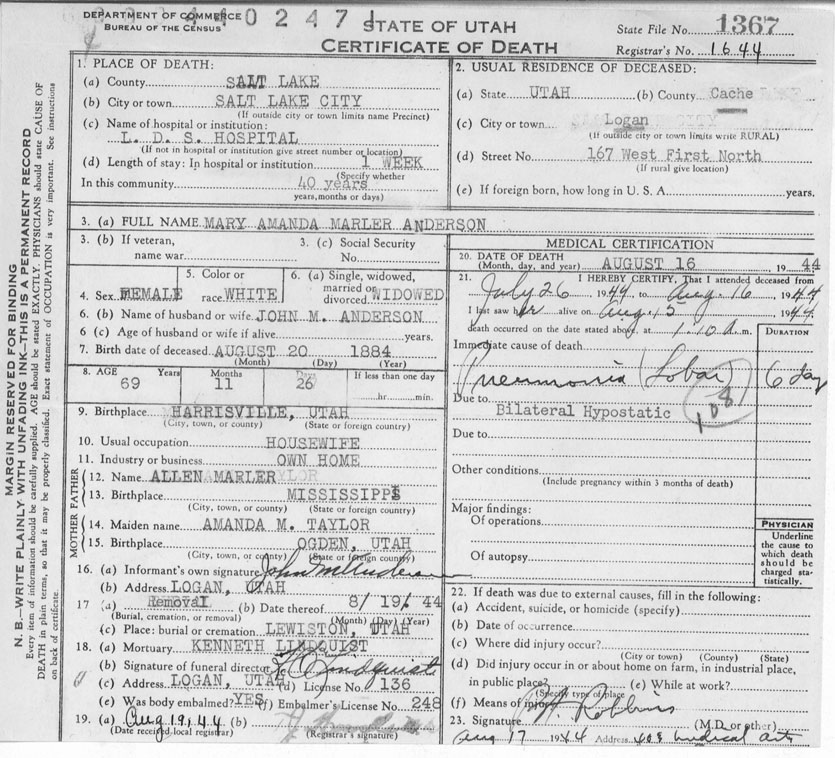 DEPARTMENT OF COMMERCE
BUREAU OF THE CENSUS
STATE OF UTAH
CERTIFICATE OF DEATH
State File No. 1367
Registrar's No. 1644
MARGIN RESERVED FOR BINDING
N. B.—WRITE PLAINLY WITH UNFADING INK—THIS IS A PERMANENT RECORD
Every item of information should be carefully supplied. AGE should be stated EXACTLY. PHYSICIANS should state CAUSE OF
DEATH in plain terms, so that it may be properly classified. Exact statement of OCCUPATION is very important. See instructions
on back of certificate.
1. PLACE OF DEATH:
(a) County SALT LAKE
(b) City or town SALT LAKE CITY
(If outside city or town limits name Precinct)
(c) Name of hospital or institution:
L. D. S. HOSPITAL
(If not in hospital or institution give street number or location)
(d) Length of stay: In hospital or institution 1 WEEK
(Specify whether
In this community 40 years
years, months or days)
2. USUAL RESIDENCE OF DECEASED:
(a) State UTAH (b) County Cache
(c) City or town Logan
(If outside city or town limits write RURAL)
(d) Street No. 167 West First North
(If rural give location)
(e) If foreign born, how long in U. S. A. years.
3. (a) FULL NAME MARY AMANDA MARLER ANDERSON
3. (b) If veteran,
name war
3. (c) Social Security
No.
4. Sex FEMALE
5. Color or
race WHITE
6. (a) Single, widowed,
married or
divorced WIDOWED
6. (b) Name of husband or wife JOHN M. ANDERSON
6. (c) Age of husband or wife if alive years.
7. Birth date of deceased AUGUST 20 1884
(Month) (Day) (Year)
8. AGE Years Months Days If less than one day
69 11 26 hr. min.
9. Birthplace HARRISVILLE, UTAH
(City, town, or county) (State or foreign country)
10. Usual occupation HOUSEWIFE
11. Industry or business OWN HOME
FATHER
12. Name ALLEN MARLER
13. Birthplace MISSISSIPPI
(City, town, or county) (State or foreign country)
MOTHER
14. Maiden name AMANDA M. TAYLOR
15. Birthplace OGDEN, UTAH
(City, town, or county) (State or foreign country)
16. (a) Informant's own signature John M Anderson
(b) Address LOGAN, UTAH
17 (a) Removal (b) Date thereof 8/ 19/ 44
(Burial, cremation, or removal) (Month) (Day) (Year)
(c) Place: burial or cremation LEWISTON, UTAH
18. (a) Mortuary KENNETH LINDQUIST
(b) Signature of funeral director Lindquist
(c) Address LOGAN, UTAH (d) License No. 136
(e) Was body embalmed? YES (f) Embalmer's License No. 248
19. (a) Aug 19, 44 (b)
(Date received local registrar) (Registrar's signature)
MEDICAL CERTIFICATION
20. DATE OF DEATH
(Month, day, and year) AUGUST 16 19 44
21. I HEREBY CERTIFY, That I attended deceased from
July 26 1944 to Aug. 16 1944
I last saw her alive on Aug. 15 1944
death occurred on the date stated above, at 1:10 A. m.
DURATION
Immediate cause of death
Pneumonia (Lobar) 6 day
Due to
Bilateral Hypostatic
108
Due to
Other conditions
(Include pregnancy within 3 months of death)
Major findings:
Of operations
Of autopsy
PHYSICIAN
Underline
the cause to
which death
should be
charged sta-
tistically.
22. If death was due to external causes, fill in the following:
(a) Accident, suicide, or homicide (specify)
(b) Date of occurrence
(c) Where did injury occur?
(City or town) (County) (State)
(d) Did injury occur in or about home on farm, in industrial place,
in public place? (e) While at work?
(Specify type of place)
(f) Means of injury
23. Signature Robbins (M.D. or other)
Aug 17 1944 Address 408 Medical Arts